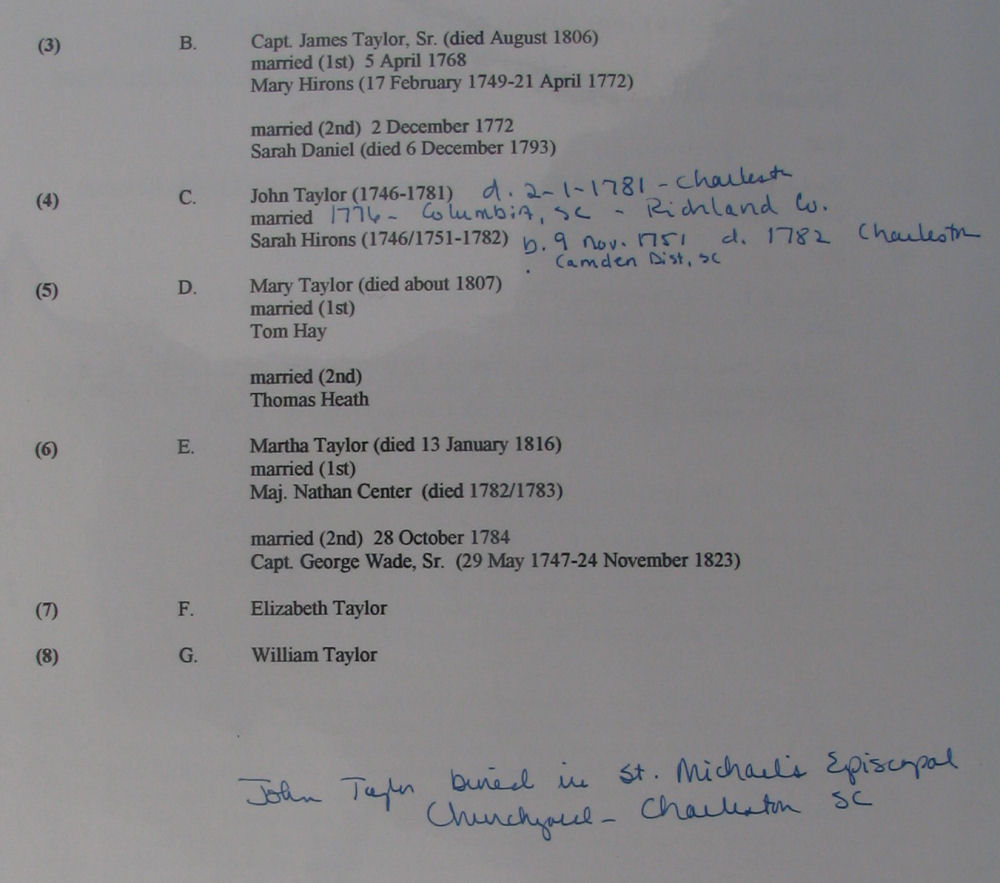 (3) B. Capt. James Taylor, Sr. (died August 1806)
married (1st) 5 April 1768
Mary Hirons (17 February 1749-21 April 1772)
married (2nd) 2 December 1772
Sarah Daniel (died 6 December 1793)
(4) C. John Taylor (1746-1781) d. 2-1-1781 - Charleston
married 1776 - Columbia, SC - Richland Co.
Sarah Hirons (1746/1751-1782) b. 9 Nov. 1751 d. 1782 Charleston
Camden Dist, SC
(5) D. Mary Taylor (died about 1807)
married (1st)
Tom Hay
married (2nd)
Thomas Heath
(6) E. Martha Taylor (died 13 January 1816)
married (1st)
Maj. Nathan Center (died 1782/1783)
married (2nd) 28 October 1784
Capt. George Wade, Sr. (29 May 1747-24 November 1823)
(7) F. Elizabeth Taylor
(8) G. William Taylor
John Taylor buried in St. Michael's Episcopal
Churchyard - Charleston SC